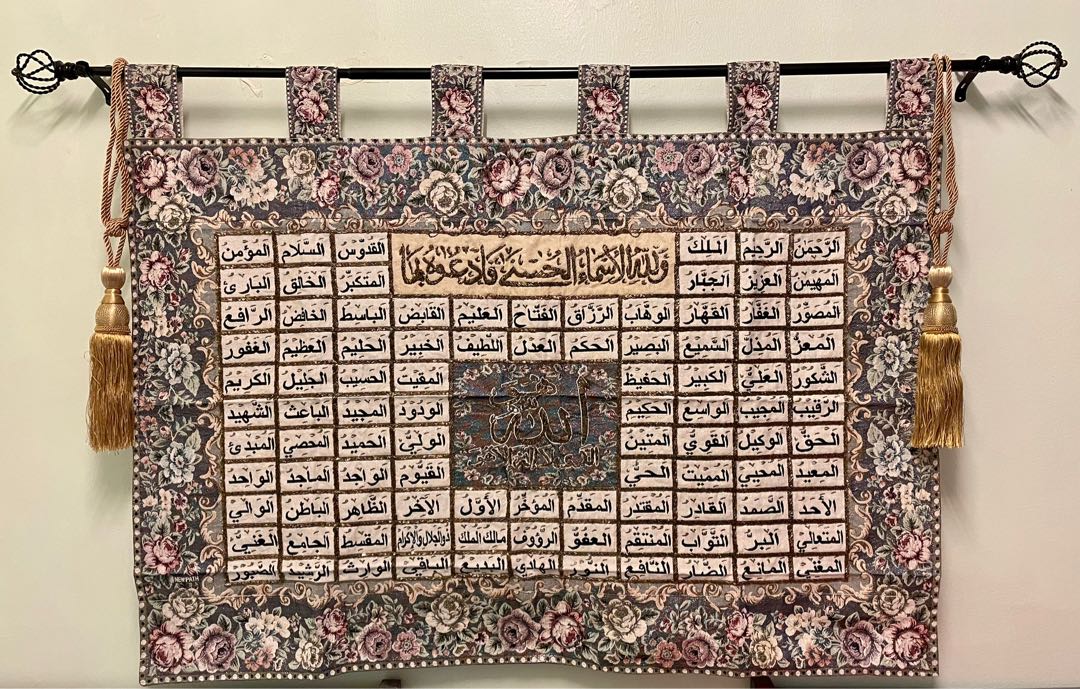 ولله الأسماء الحسنى فادعوه بها
الرحمن الرحيم الملك القدوس السلام المؤمن
المهيمن العزيز الجبار المتكبر الخالق البارئ
المصور الغفار القهار الوهاب الرزاق الفتاح العليم القابض الباسط الخافض الرافع
المعز المذل السميع البصير الحكم العدل اللطيف الخبير الحليم العظيم الغفور
الشكور العلي الكبير الحفيظ المقيت الحسيب الجليل الكريم
الرقيب المجيب الواسع الحكيم الودود المجيد الباعث الشهيد
الله
الحق الوكيل القوي المتين الولي الحميد المحصي المبدئ
المعيد المحيي المميت الحي القيوم الواجد الماجد الواحد
الأحد الصمد القادر المقتدر المقدم المؤخر الأول الآخر الظاهر الباطن الوالي
المتعالي البر التواب المنتقم العفو الرؤوف مالك الملك ذو الجلال والإكرام المقسط الجامع الغني
المغني المانع الضار النافع النور الهادي البديع الباقي الوارث الرشيد الصبور
NEW PATH